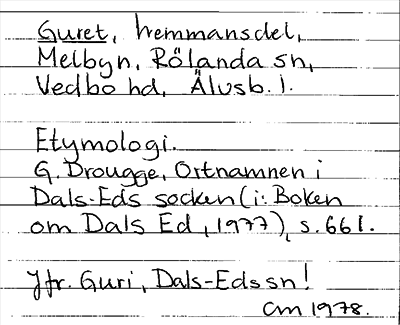 Guret, hemmansdel,
Melbyn, Rölanda sn,
Vedbo hd, Älvsb. l.
Etymologi.
G. Drougge, Ortnamnen i
Dals-Eds socken (i: Boken
om Dals Ed, 1977), s. 661.
Jfr. Guri, Dals-Eds sn!
Cm 1978.